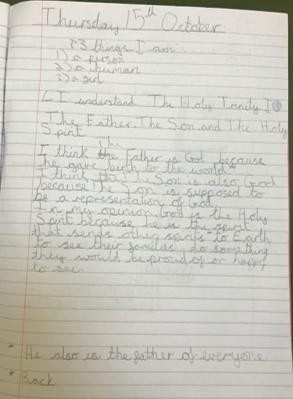 Thursday 15th October
3 things I am
1) a person
2) a human
3) a girl
LI understand The Holy Trinity
The Father, The Son and The Holy
Spirit
The
I think the Father is God because
he gave birth to the world
I think that the Son is also God
because the Son is supposed to
be a representation of God
In my opinion God is the Holy
Spirit because he is the spirit
that sends other spirits to Earth
to see their families do something
they would be proud of or happy
to see.
* He also is the father of everyone
* Back